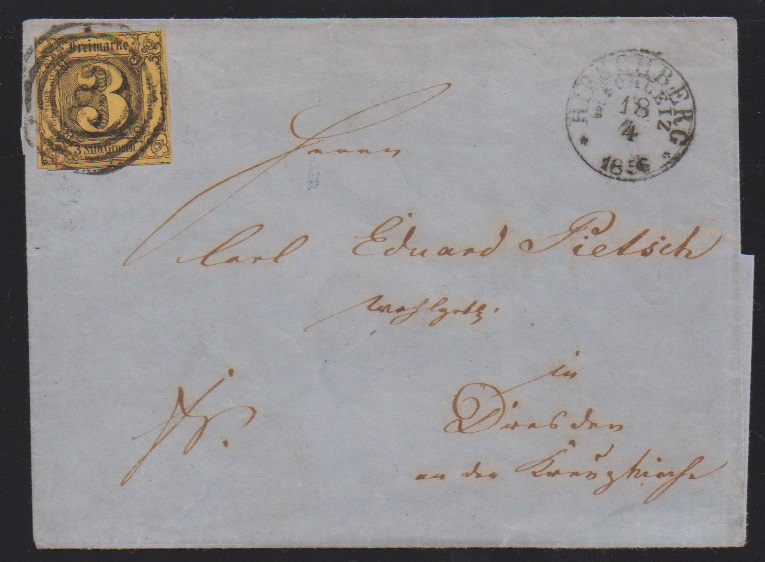 Freimarke
3
3 Silb. Grosch.
HIRSCHBERG
B. SCHLEIZ
18
4
1856
Herrn
Carl Eduard Pietsch
Wohlgeb.
in
fr.
Dresden
an der Kreuzkirche